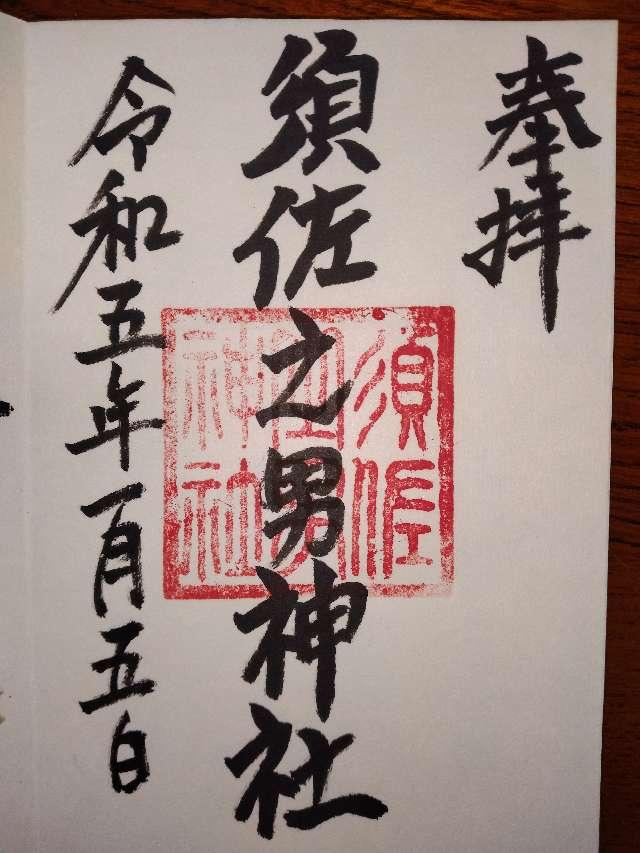 奉拝
須佐之男神社
令和五年一月五日
須佐
神社